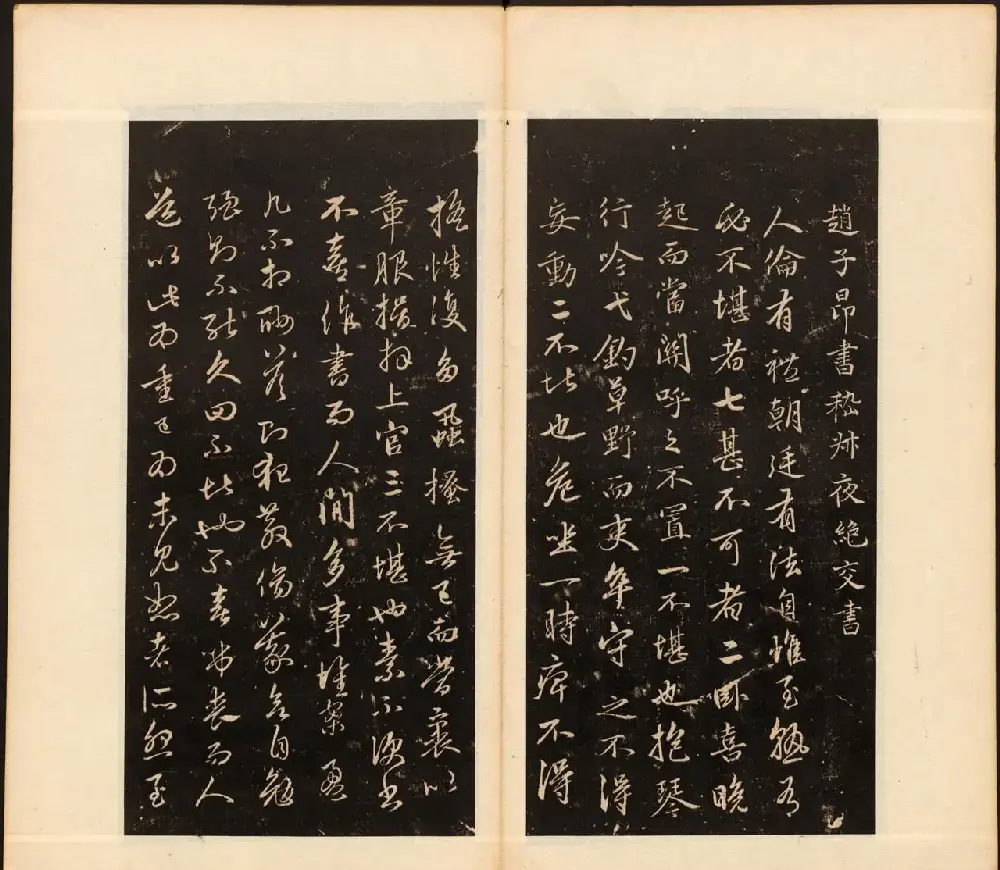 趙子昂書嵇叔夜絶交書
人倫有禮朝廷有法自惟至熟有
必不堪者七甚不可者二卧喜晚
起而當關呼之不置一不堪也抱琴
行吟弋釣草野而吏卒守之不得
妄動二不堪也危坐一時痺不得
搖性復多蝨搔無已而當裹以
章服揖拜上官三不堪也素不便書
不喜作書而人間多事堆案盈
机不相酬答則犯教傷義欲自勉
強則不能久四不堪也不喜弔喪而人
道以此為重已為未見恕者所怨至